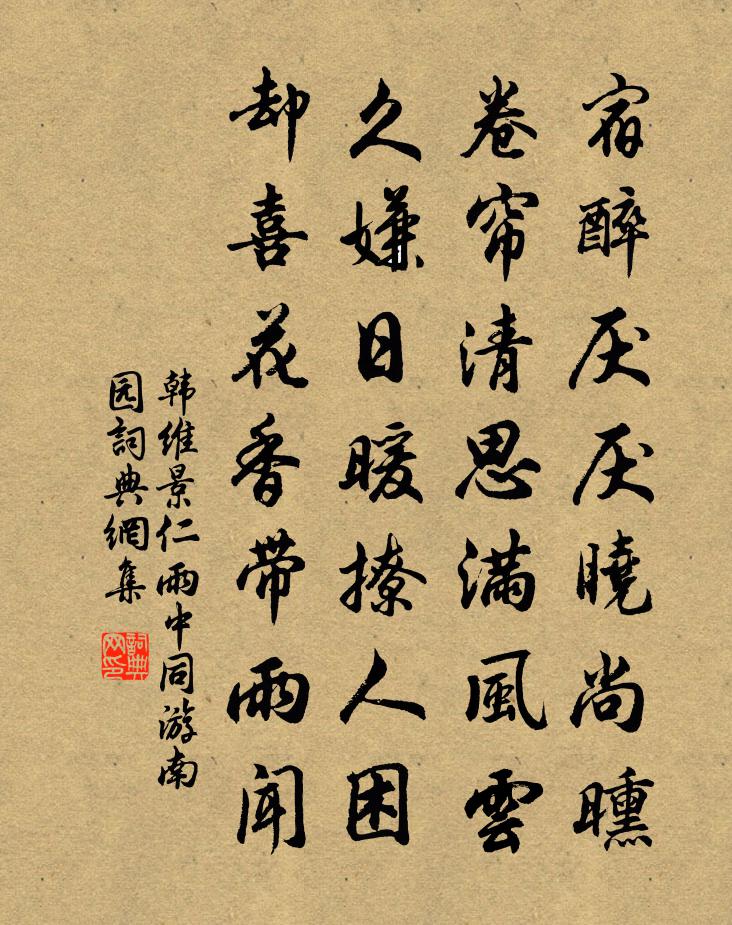 宿醉厌厌曉尚曛
卷帘清思满風雲
久嫌日暖撩人困
却喜花香带雨闻
韩维景仁雨中同游南
园詞典網集
詞典网印